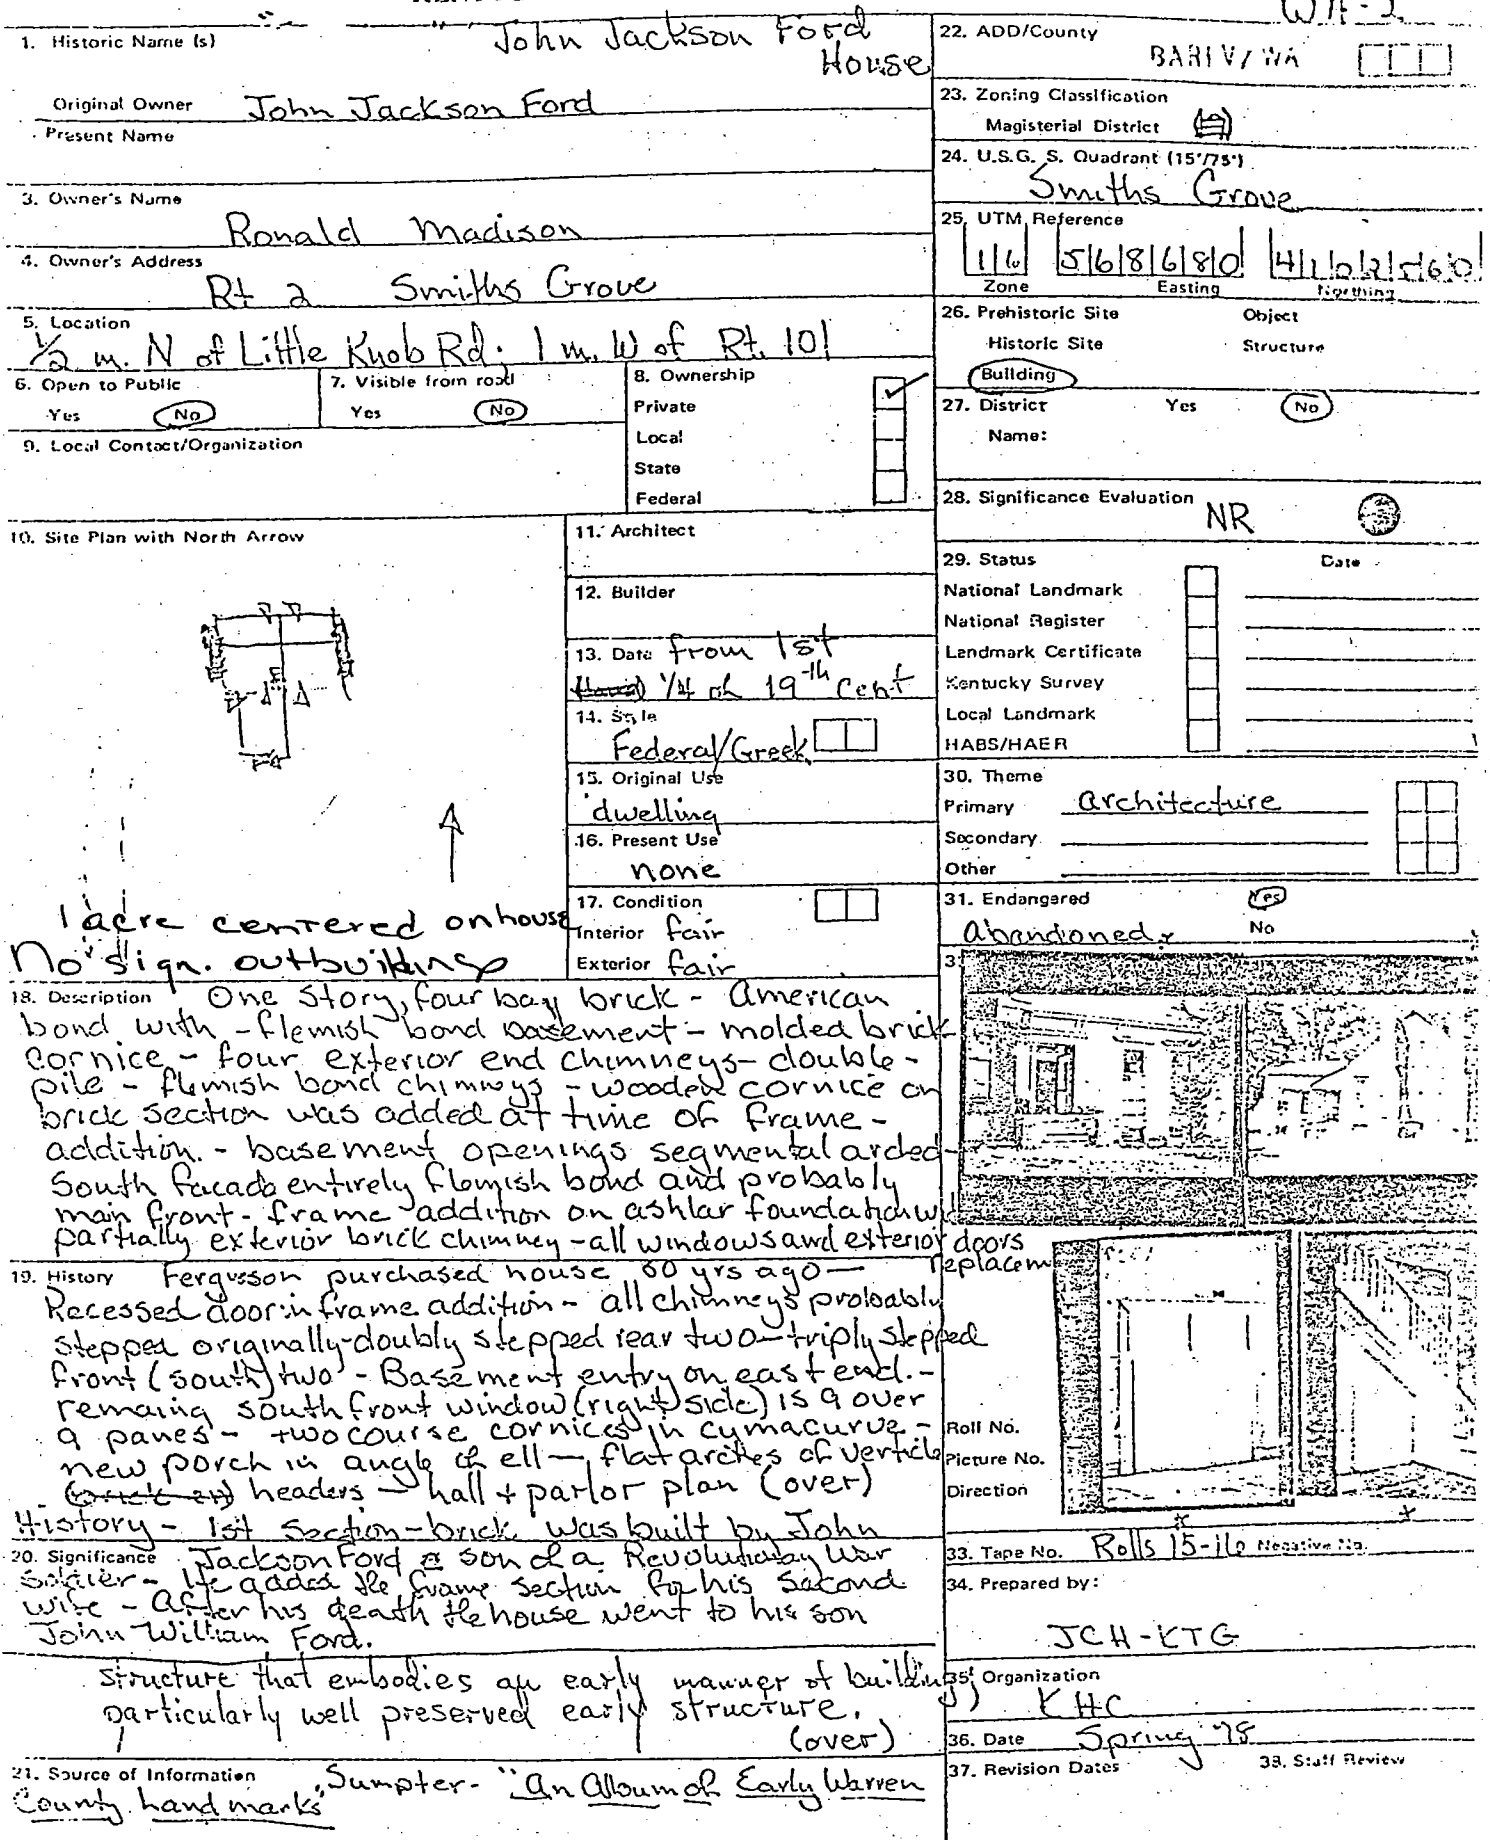 WA-2
1. Historic Name (s) John Jackson Ford
House
Original Owner John Jackson Ford
Present Name
3. Owner's Name
Ronald Madison
4. Owner's Address
Rt 2 Smiths Grove
5. Location
1/2 m. N of Little Knob Rd. 1 m. W of Rt. 101
6. Open to Public
Yes No
7. Visible from road
Yes No
8. Ownership
Private
Local
State
Federal
9. Local Contact/Organization
10. Site Plan with North Arrow
1 acre centered on house
No sign. outbuildings
11. Architect
12. Builder
13. Date from 1st
1/4 of 19th Cent
14. Style
Federal/Greek
15. Original Use
dwelling
16. Present Use
none
17. Condition
Interior fair
Exterior fair
18. Description One Story, four bay brick - American
bond with - flemish bond basement - molded brick
cornice - four exterior end chimneys - double -
pile - flemish bond chimneys - wooden cornice on
brick section was added at time of frame -
addition. - basement openings segmental arched -
South facade entirely flemish bond and probably
main front - frame addition on ashlar foundation w/
partially exterior brick chimney - all windows and exterior doors
replacem
19. History Fergusson purchased house 60 yrs ago —
Recessed door in frame addition - all chimneys probably
stepped originally - doubly stepped rear two - triply stepped
front (south) two - Basement entry on east end. -
remaing south front window (right side) is 9 over
9 panes - two course cornices in cymacurve -
new porch in angle of ell — flat arches of verticle
headers — hall + parlor plan (over)
History - 1st section - brick was built by John
20. Significance Jackson Ford a son of a Revolutionary War
Soldier - He added the frame section for his second
wife - After his death the house went to his son
John William Ford.
structure that embodies an early manner of building
particularly well preserved early structure.
(over)
21. Source of Information Sumpter - "An Album of Early Warren
County Landmarks"
22. ADD/County
BARIV/WA
23. Zoning Classification
Magisterial District
24. U.S.G. S. Quadrant (15'/75')
Smiths Grove
25. UTM Reference
16 568680 4102560
Zone Easting Northing
26. Prehistoric Site Object
Historic Site Structure
Building
27. District Yes No
Name:
28. Significance Evaluation NR
29. Status Date
National Landmark
National Register
Landmark Certificate
Kentucky Survey
Local Landmark
HABS/HAER
30. Theme
Primary architecture
Secondary
Other
31. Endangered Yes
Abandoned. No
3
Roll No.
Picture No.
Direction
33. Tape No. Rolls 15-16 Negative No.
34. Prepared by:
JCH-KTG
35. Organization
KHC
36. Date Spring '78
37. Revision Dates 38. Staff Review